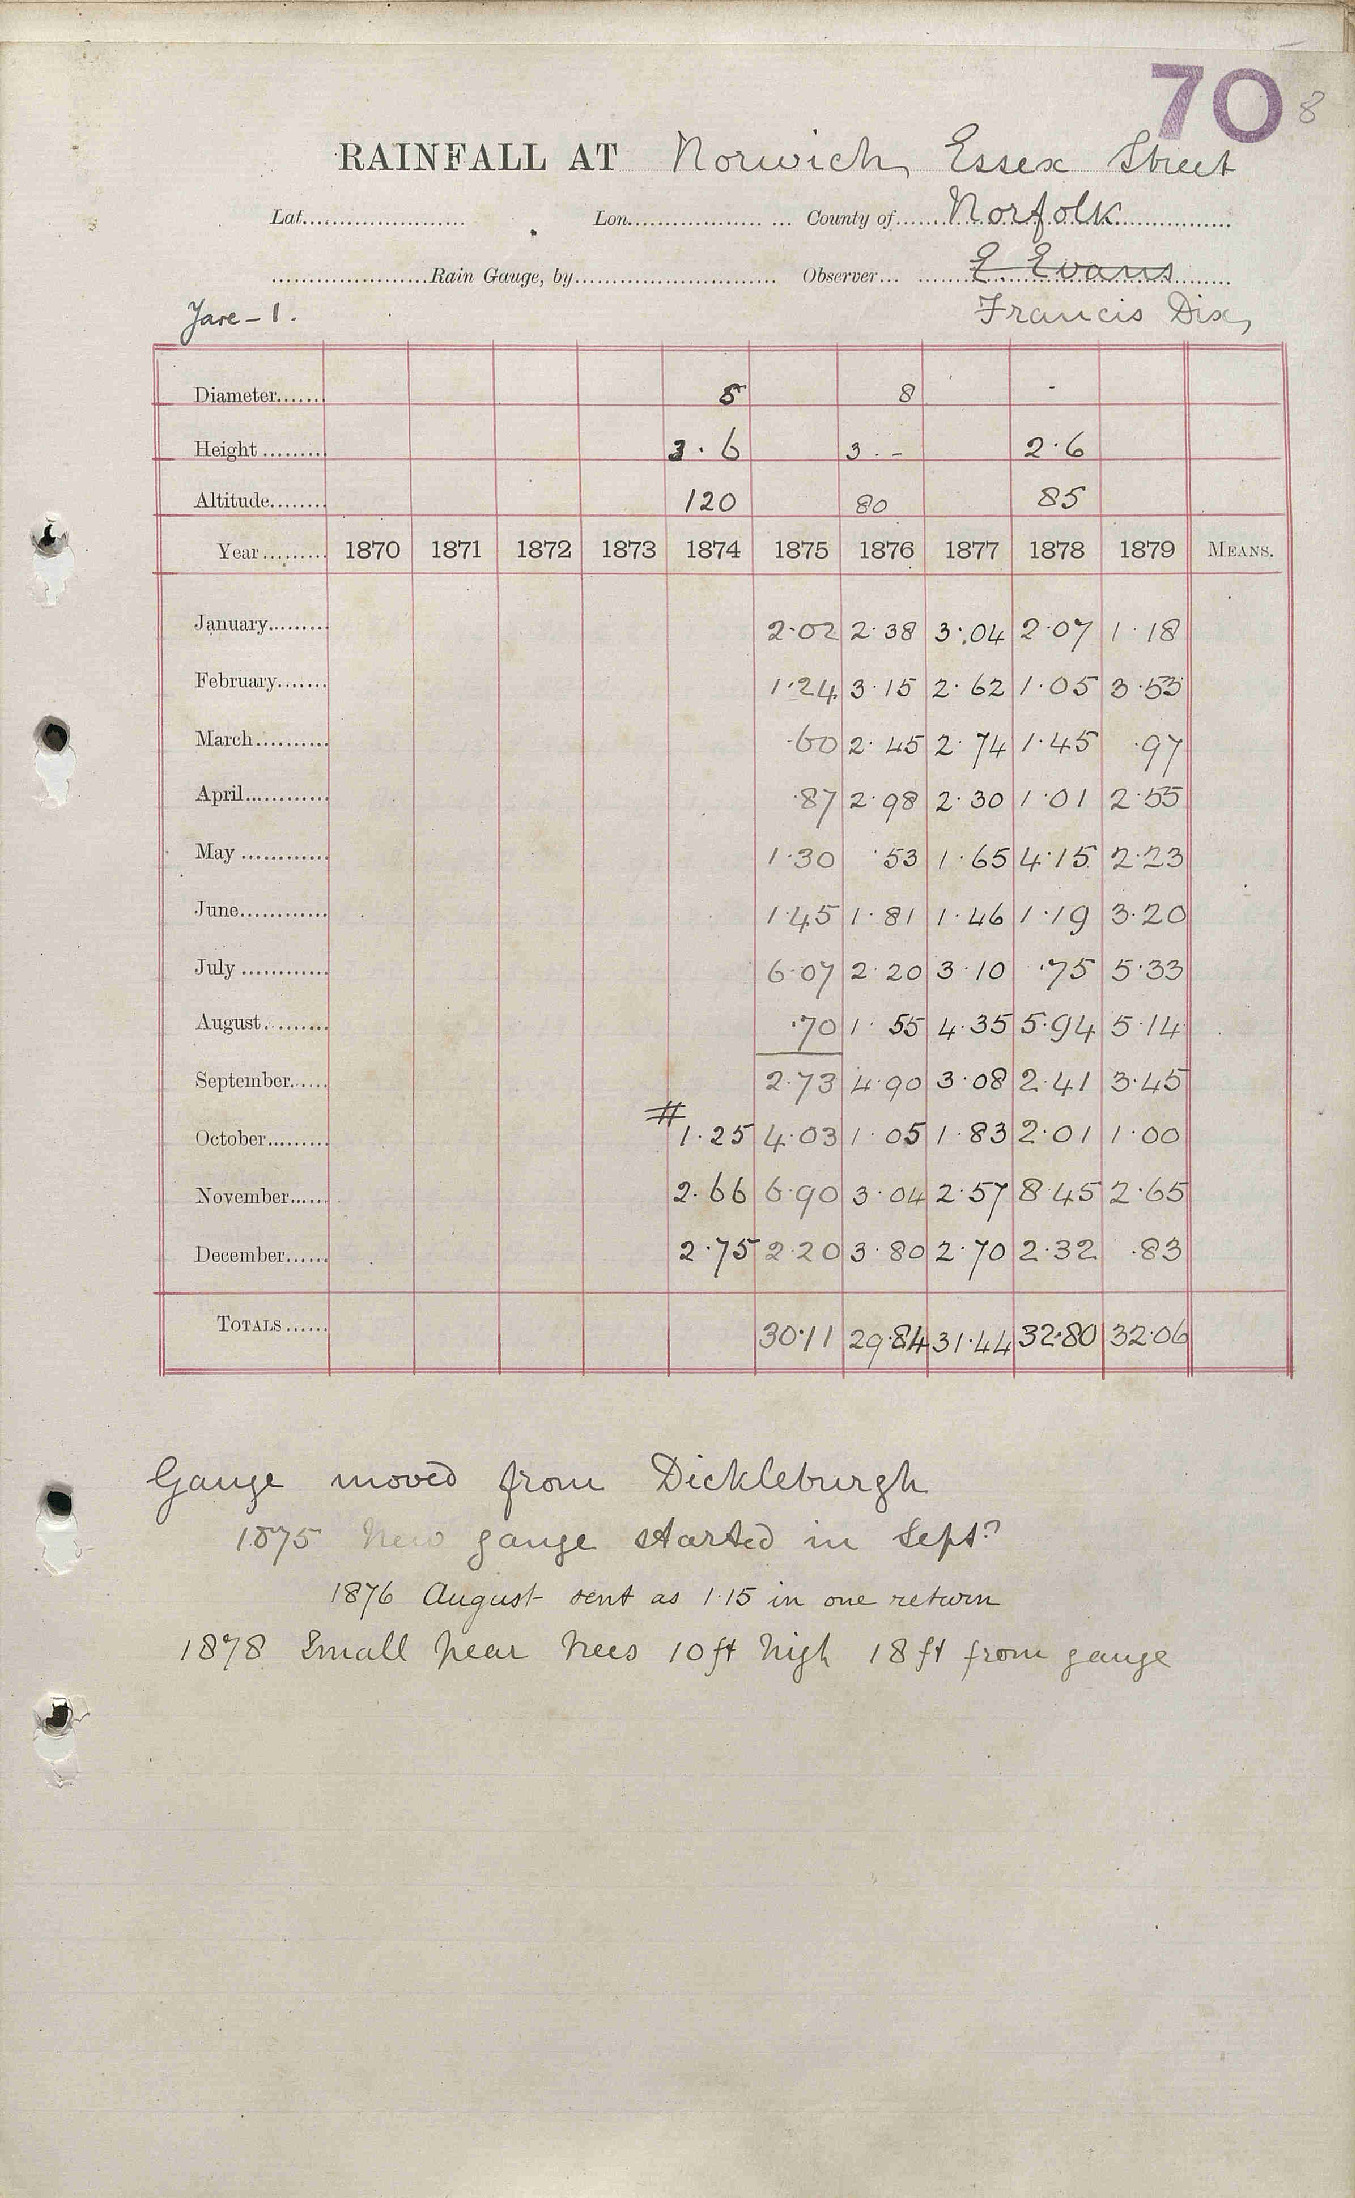 70 8
RAINFALL AT Norwich, Essex Street
Lat. Lon. County of Norfolk
Rain Gauge, by Observer E Evans
Yare - 1. Francis Dix,
Diameter 5 8 -
Height 3.6 3.- 2.6
Altitude 120 80 85
Year 1870 1871 1872 1873 1874 1875 1876 1877 1878 1879 MEANS.
January 2.02 2.38 3.04 2.07 1.18
February 1.24 3.15 2.62 1.05 3.53
March .60 2.45 2.74 1.45 .97
April .87 2.98 2.30 1.01 2.55
May 1.30 .53 1.65 4.15 2.23
June 1.45 1.81 1.46 1.19 3.20
July 6.07 2.20 3.10 .75 5.33
August .70 1.55 4.35 5.94 5.14
September 2.73 4.90 3.08 2.41 3.45
October # 1.25 4.03 1.05 1.83 2.01 1.00
November 2.66 6.90 3.04 2.57 8.45 2.65
December 2.75 2.20 3.80 2.70 2.32 .83
TOTALS 30.11 29.84 31.44 32.80 32.06
Gauge moved from Dickleburgh
1875 New gauge started in Sept?
1876 August sent as 1.15 in one return
1878 Small pear trees 10ft high 18ft from gauge